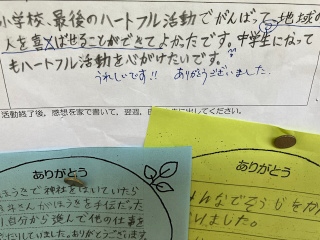 小学校、最後のハートフル活動でがんばって地域の
人を喜ばせることができてよかったです。中学生になって
もハートフル活動を心がけたいです。
うれしいです!! ありがとうございました。
活動終了後、感想を家で書いて、翌週、
出してください。
ありがとう
ほうきで神社をはいていたら
年生さんがほうきを手伝った
自分から進んで他の仕事を
だりしていました。ありがとうございます
ありがとう
んなでそうじをが
いました。